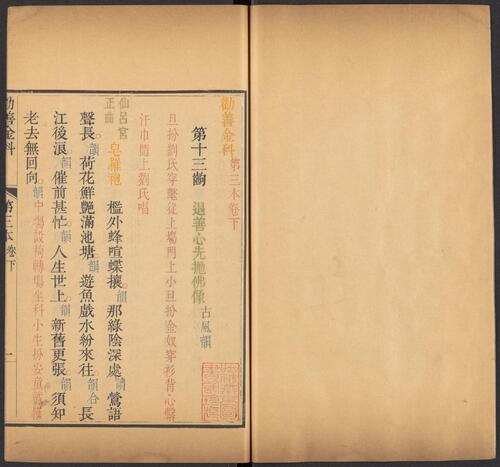 勸善金科
第三本卷下
第十三齣　退善心先拋佛像
古風韻
旦扮劉氏穿氅從上場門上小旦扮金奴穿衫背心繫
汗巾隨上劉氏唱
仙呂宮
正曲
皂羅袍
檻外蜂喧蝶攘韻那綠陰深處讀鶯語
聲長韻荷花鮮艷滿池塘韻遊魚戲水紛來往韻合長
江後浪韻催前甚忙韻人生世上韻新舊更張韻須知
老去無回向韻中場設椅轉場坐科小生扮安童
勸善金科
第三本卷下
一